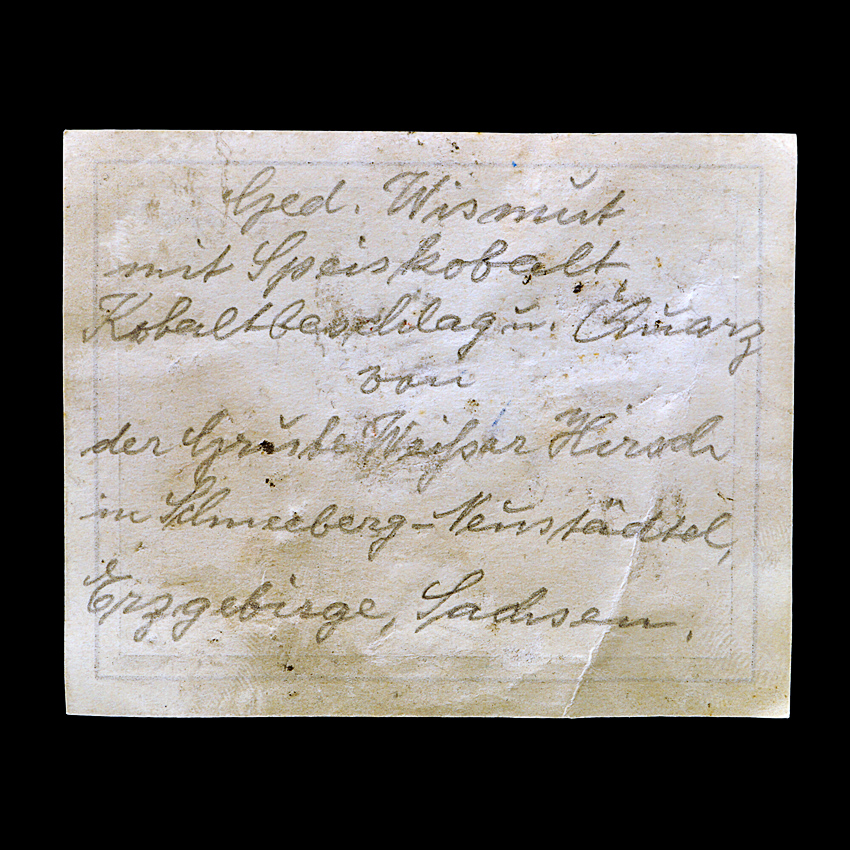 Ged. Wismut
mit Speiskobalt
Kobaltbeschlag u. Quarz
von
der Grube Weißer Hirsch
in Schneeberg-Neustädtel,
Erzgebirge, Sachsen.